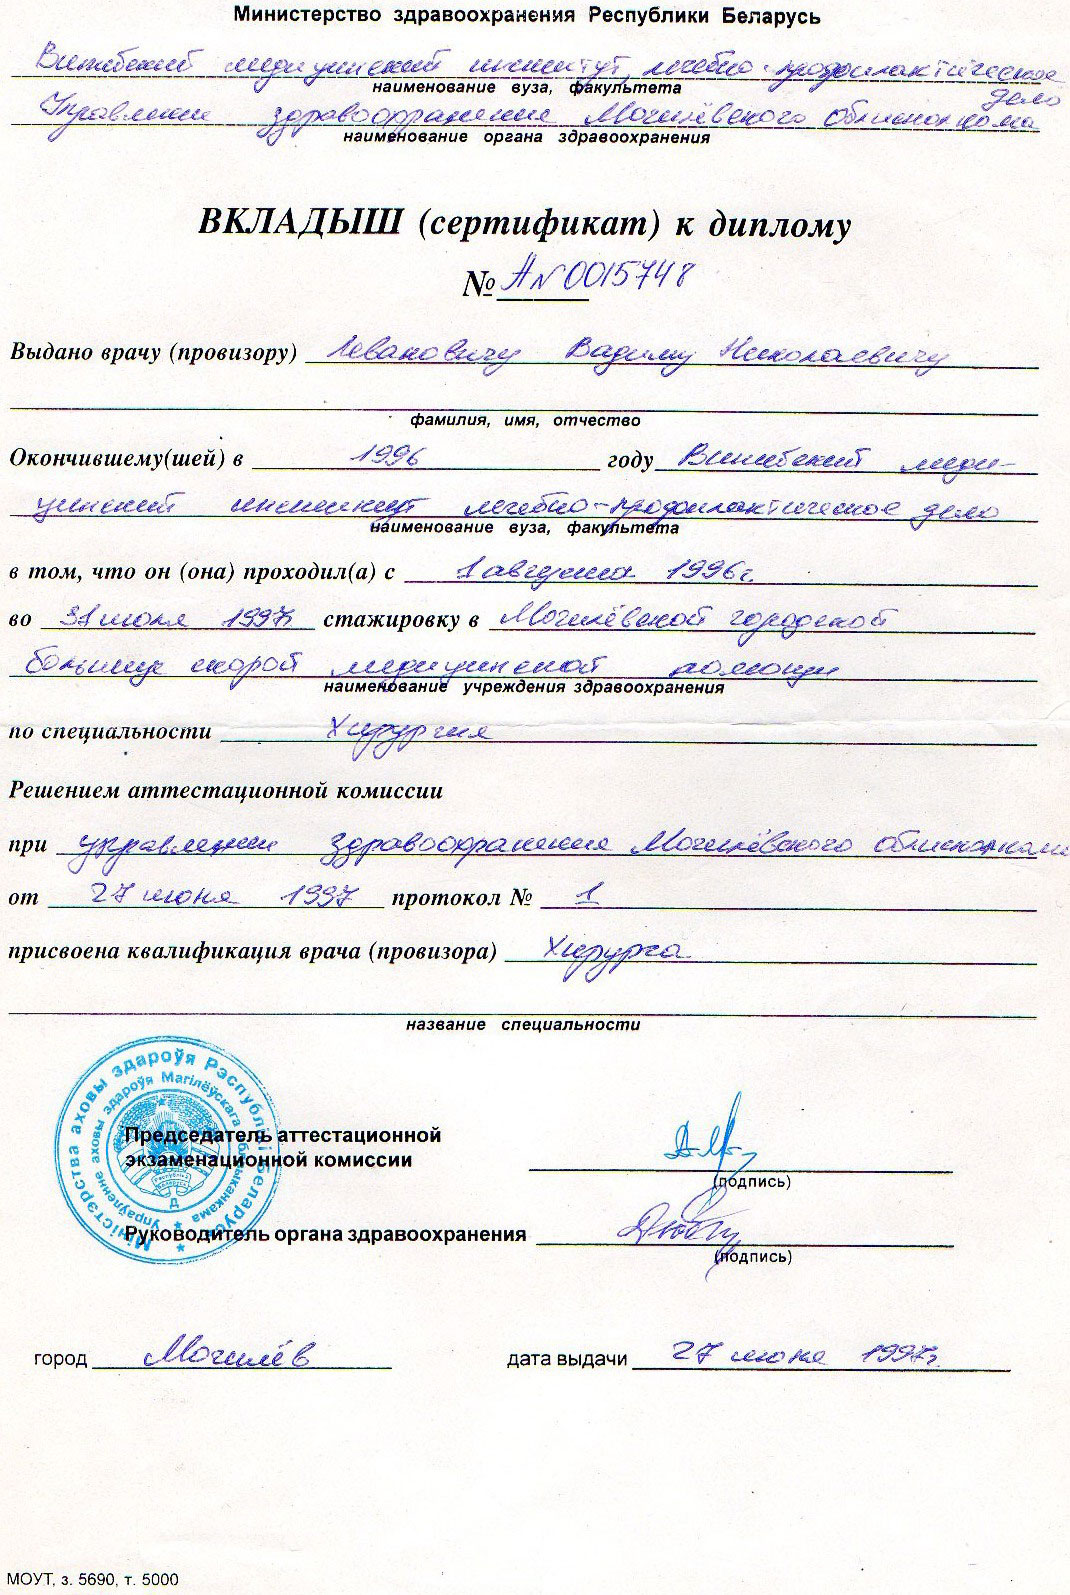 Министерство здравоохранения Республики Беларусь
Витебский медицинский институт, лечебно-профилактическое
дело
наименование вуза, факультета
Управление здравоохранения Могилёвского облисполкома
наименование органа здравоохранения
ВКЛАДЫШ (сертификат) к диплому
№ АN 0015748
Выдано врачу (провизору) Левановичу Вадиму Николаевичу
фамилия, имя, отчество
Окончившему(шей) в 1996 году Витебский меди-
цинский институт лечебно-профилактическое дело
наименование вуза, факультета
в том, что он (она) проходил(а) с 1 августа 1996г.
во 31 июля 1997г. стажировку в Могилёвской городской
больнице скорой медицинской помощи
наименование учреждения здравоохранения
по специальности Хирургия
Решением аттестационной комиссии
при управлении здравоохранения Могилёвского облисполкома
от 27 июня 1997 протокол № 1
присвоена квалификация врача (провизора) Хирурга
название специальности
Міністэрства аховы здароўя Рэспублікі Беларусь
Упраўленне аховы здароўя Магілёўскага аблвыканкама
Д
Председатель аттестационной
экзаменационной комиссии
(подпись)
Руководитель органа здравоохранения
(подпись)
город Могилёв дата выдачи 27 июня 1997г.
МОУТ, з. 5690, т. 5000